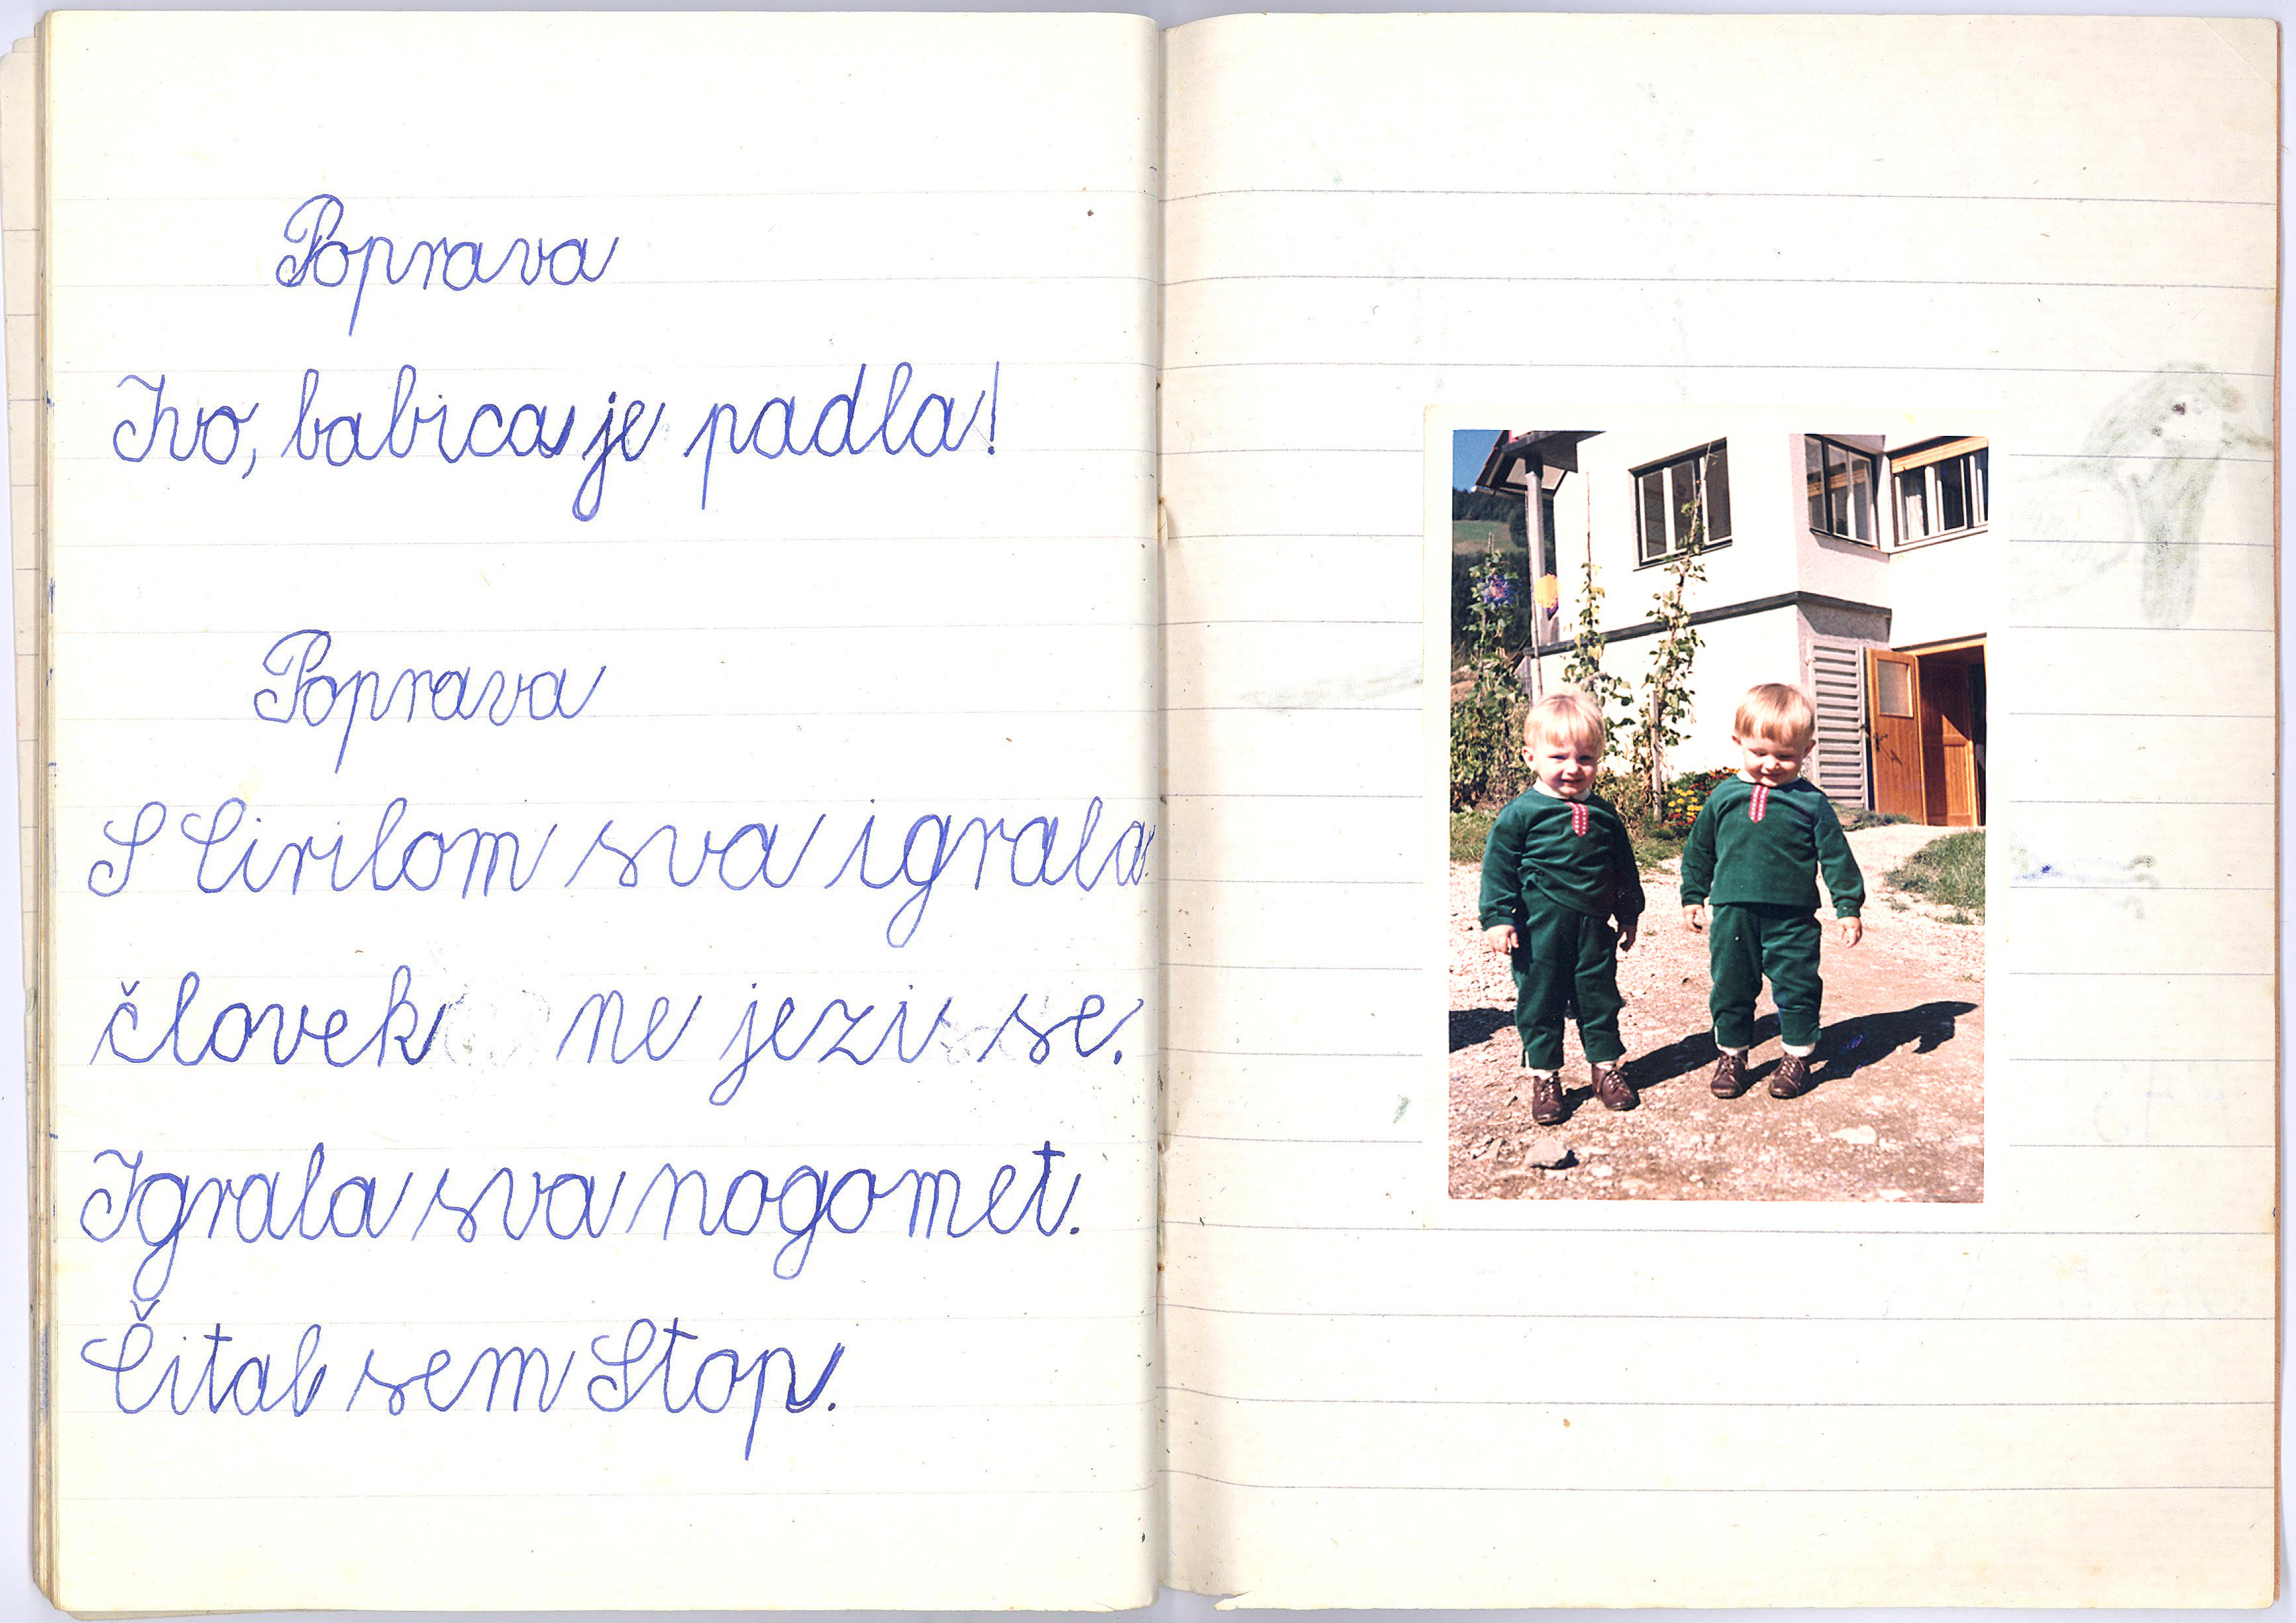 Poprava
Ivo, babica je padla!
Poprava
S Cirilom sva igrala
človek ne jezi se.
Igrala sva nogomet.
Čital sem Stop.